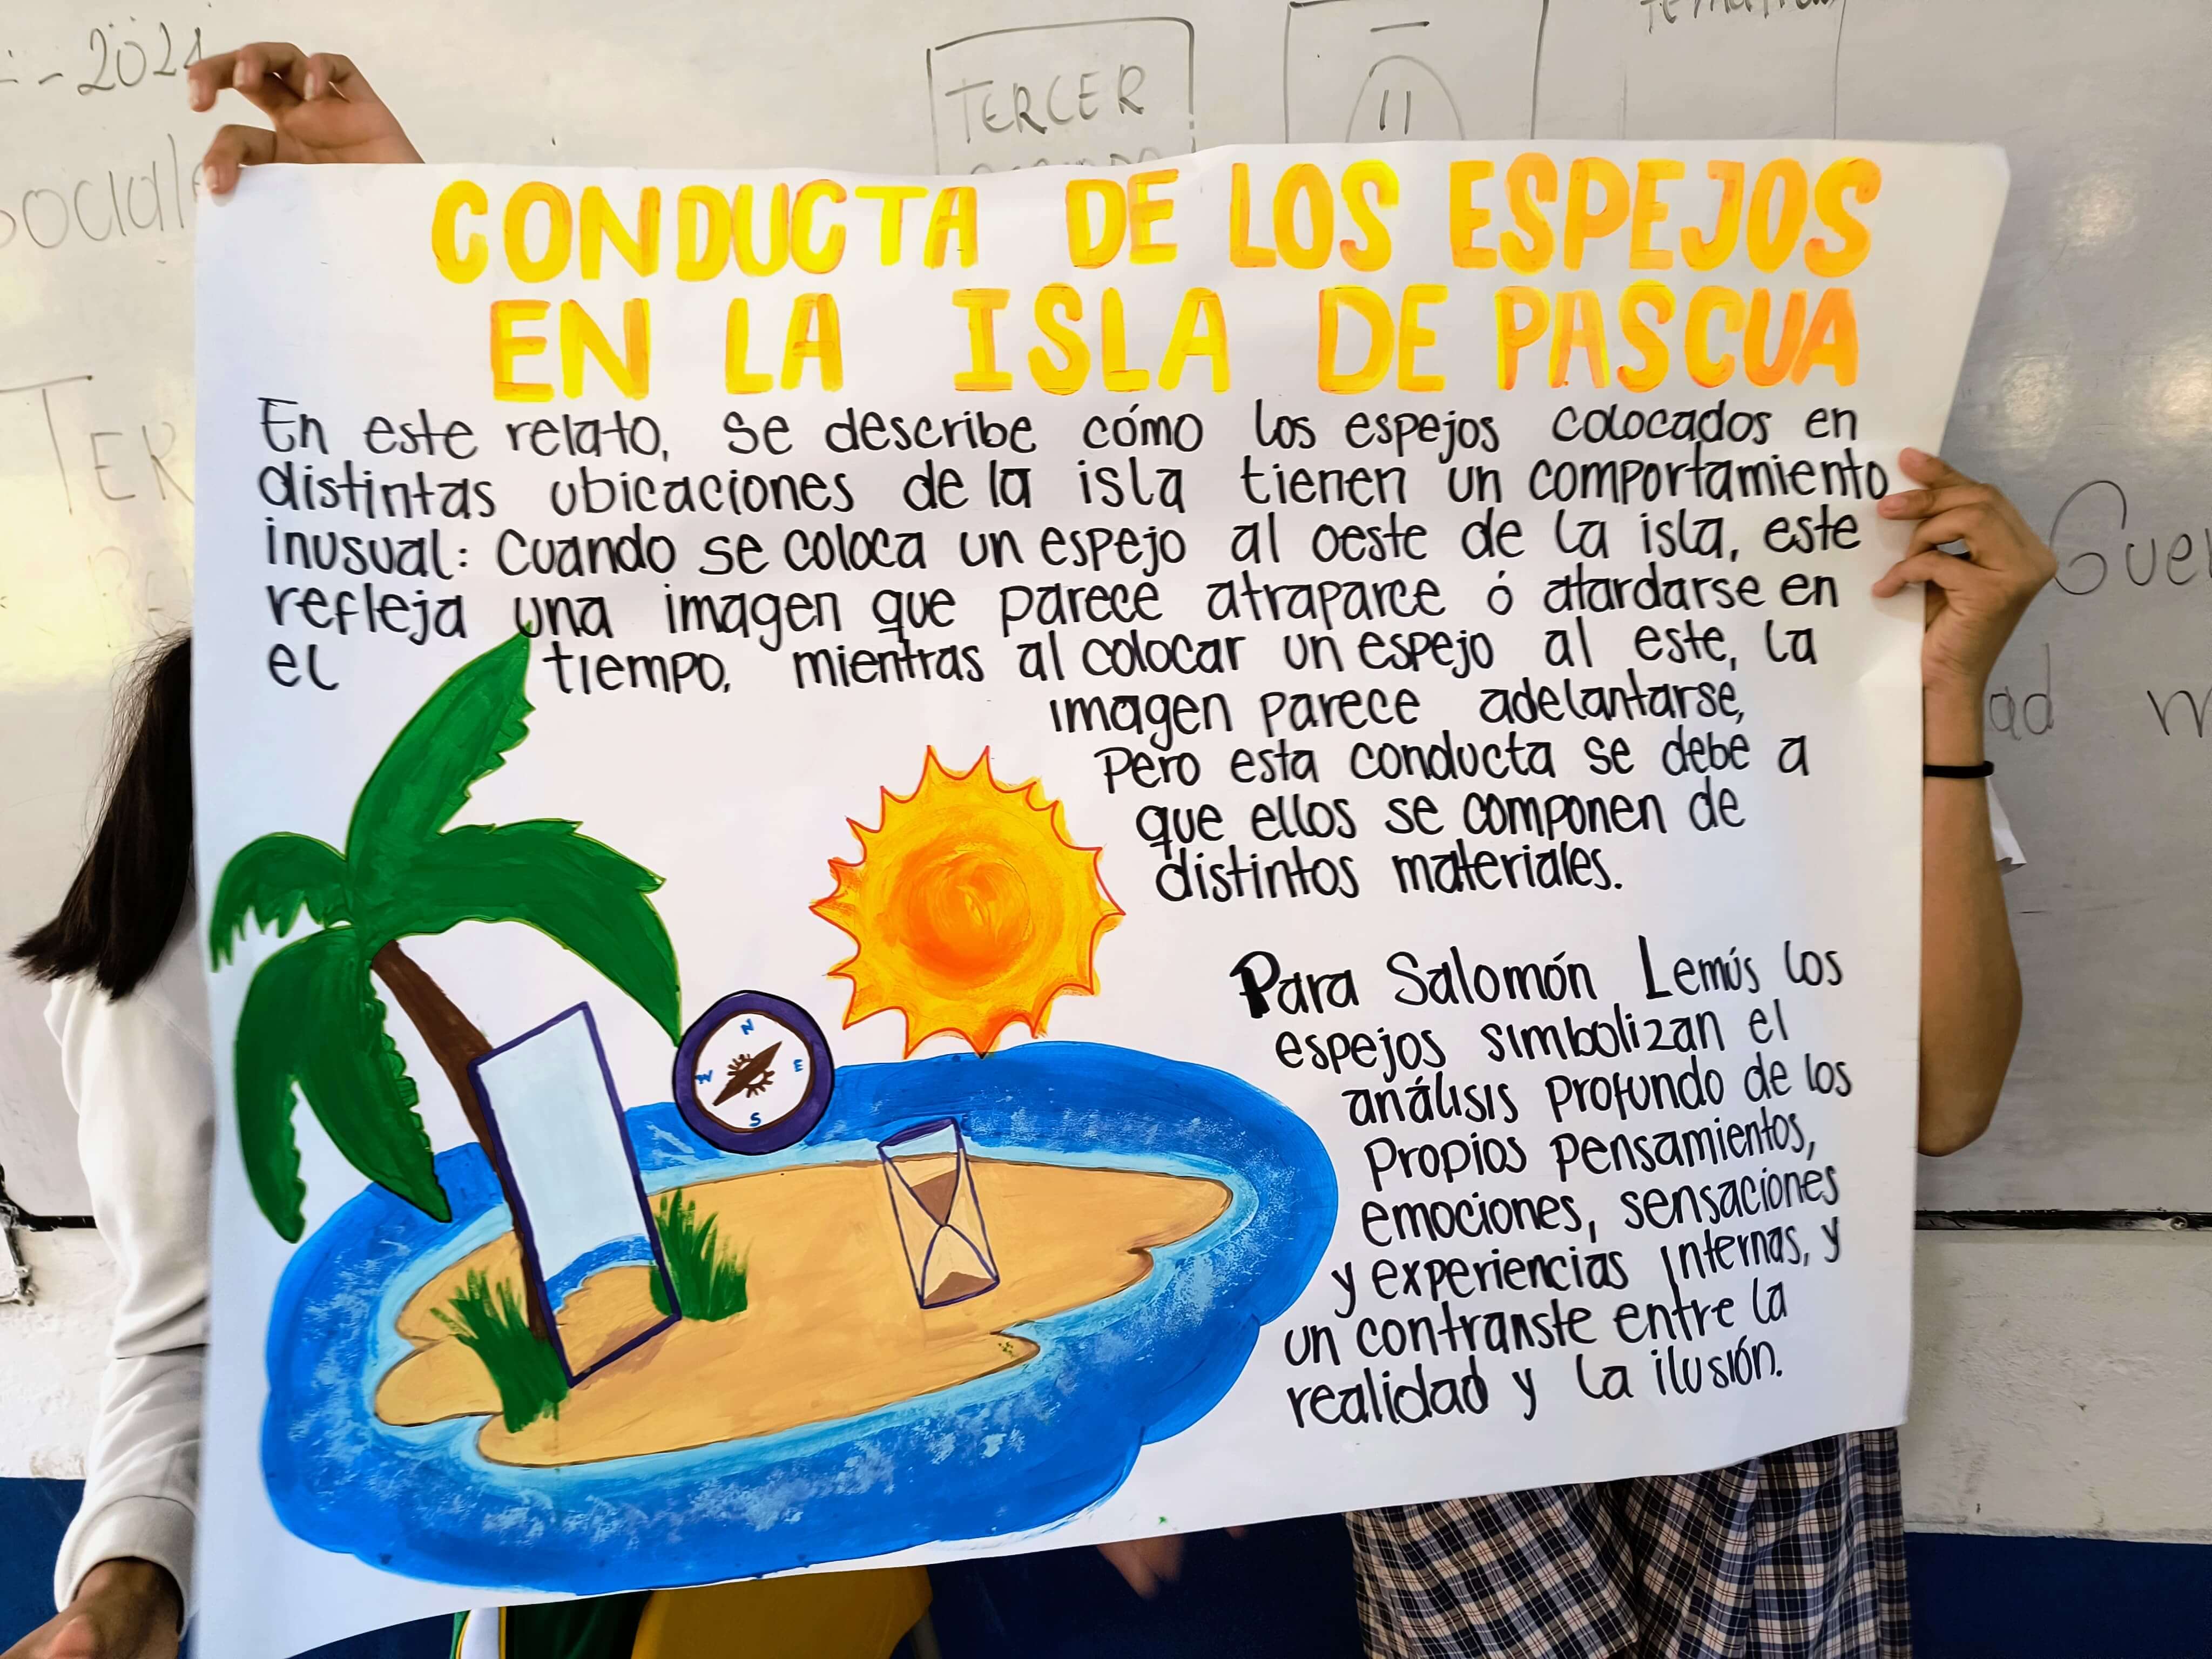 -2021
TERCER
11
Social
TER
Gue
ad m
CONDUCTA DE LOS ESPEJOS
EN LA ISLA DE PASCUA
En este relato, se describe cómo los espejos colocados en
distintas ubicaciones de la isla tienen un comportamiento
inusual: Cuando se coloca un espejo al oeste de la isla, este
refleja una imagen que parece atraparce ó atardarse en
el tiempo, mientras al colocar un espejo al este, la
imagen parece adelantarse,
Pero esta conducta se debe a
que ellos se componen de
distintos materiales.
Para Salomón Lemús los
espejos simbolizan el
análisis profundo de los
Propios pensamientos,
emociones, sensaciones
y experiencias Internas, y
un contranste entre la
realidad y la ilusión.
N
W E
S